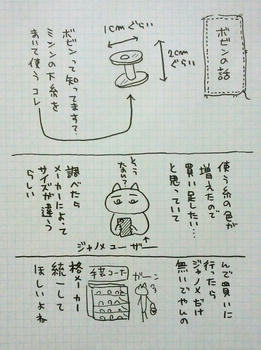 ボビンの話
1cmぐらい
2cm
ぐらい
ボビンって知ってます?
ミシンの下糸を
まいて使うコレ
使う糸の色が
増えたので
買い足したい…
と思っていて
そう
なおいで
ジャノメユーザー
調べたら
メーカーによって
サイズが違う
らしい
んで買いに
行ったら
ジャノメだけ
無いでやんの
ガーン
手芸コーナー
各メーカー
統一して
ほしいよね